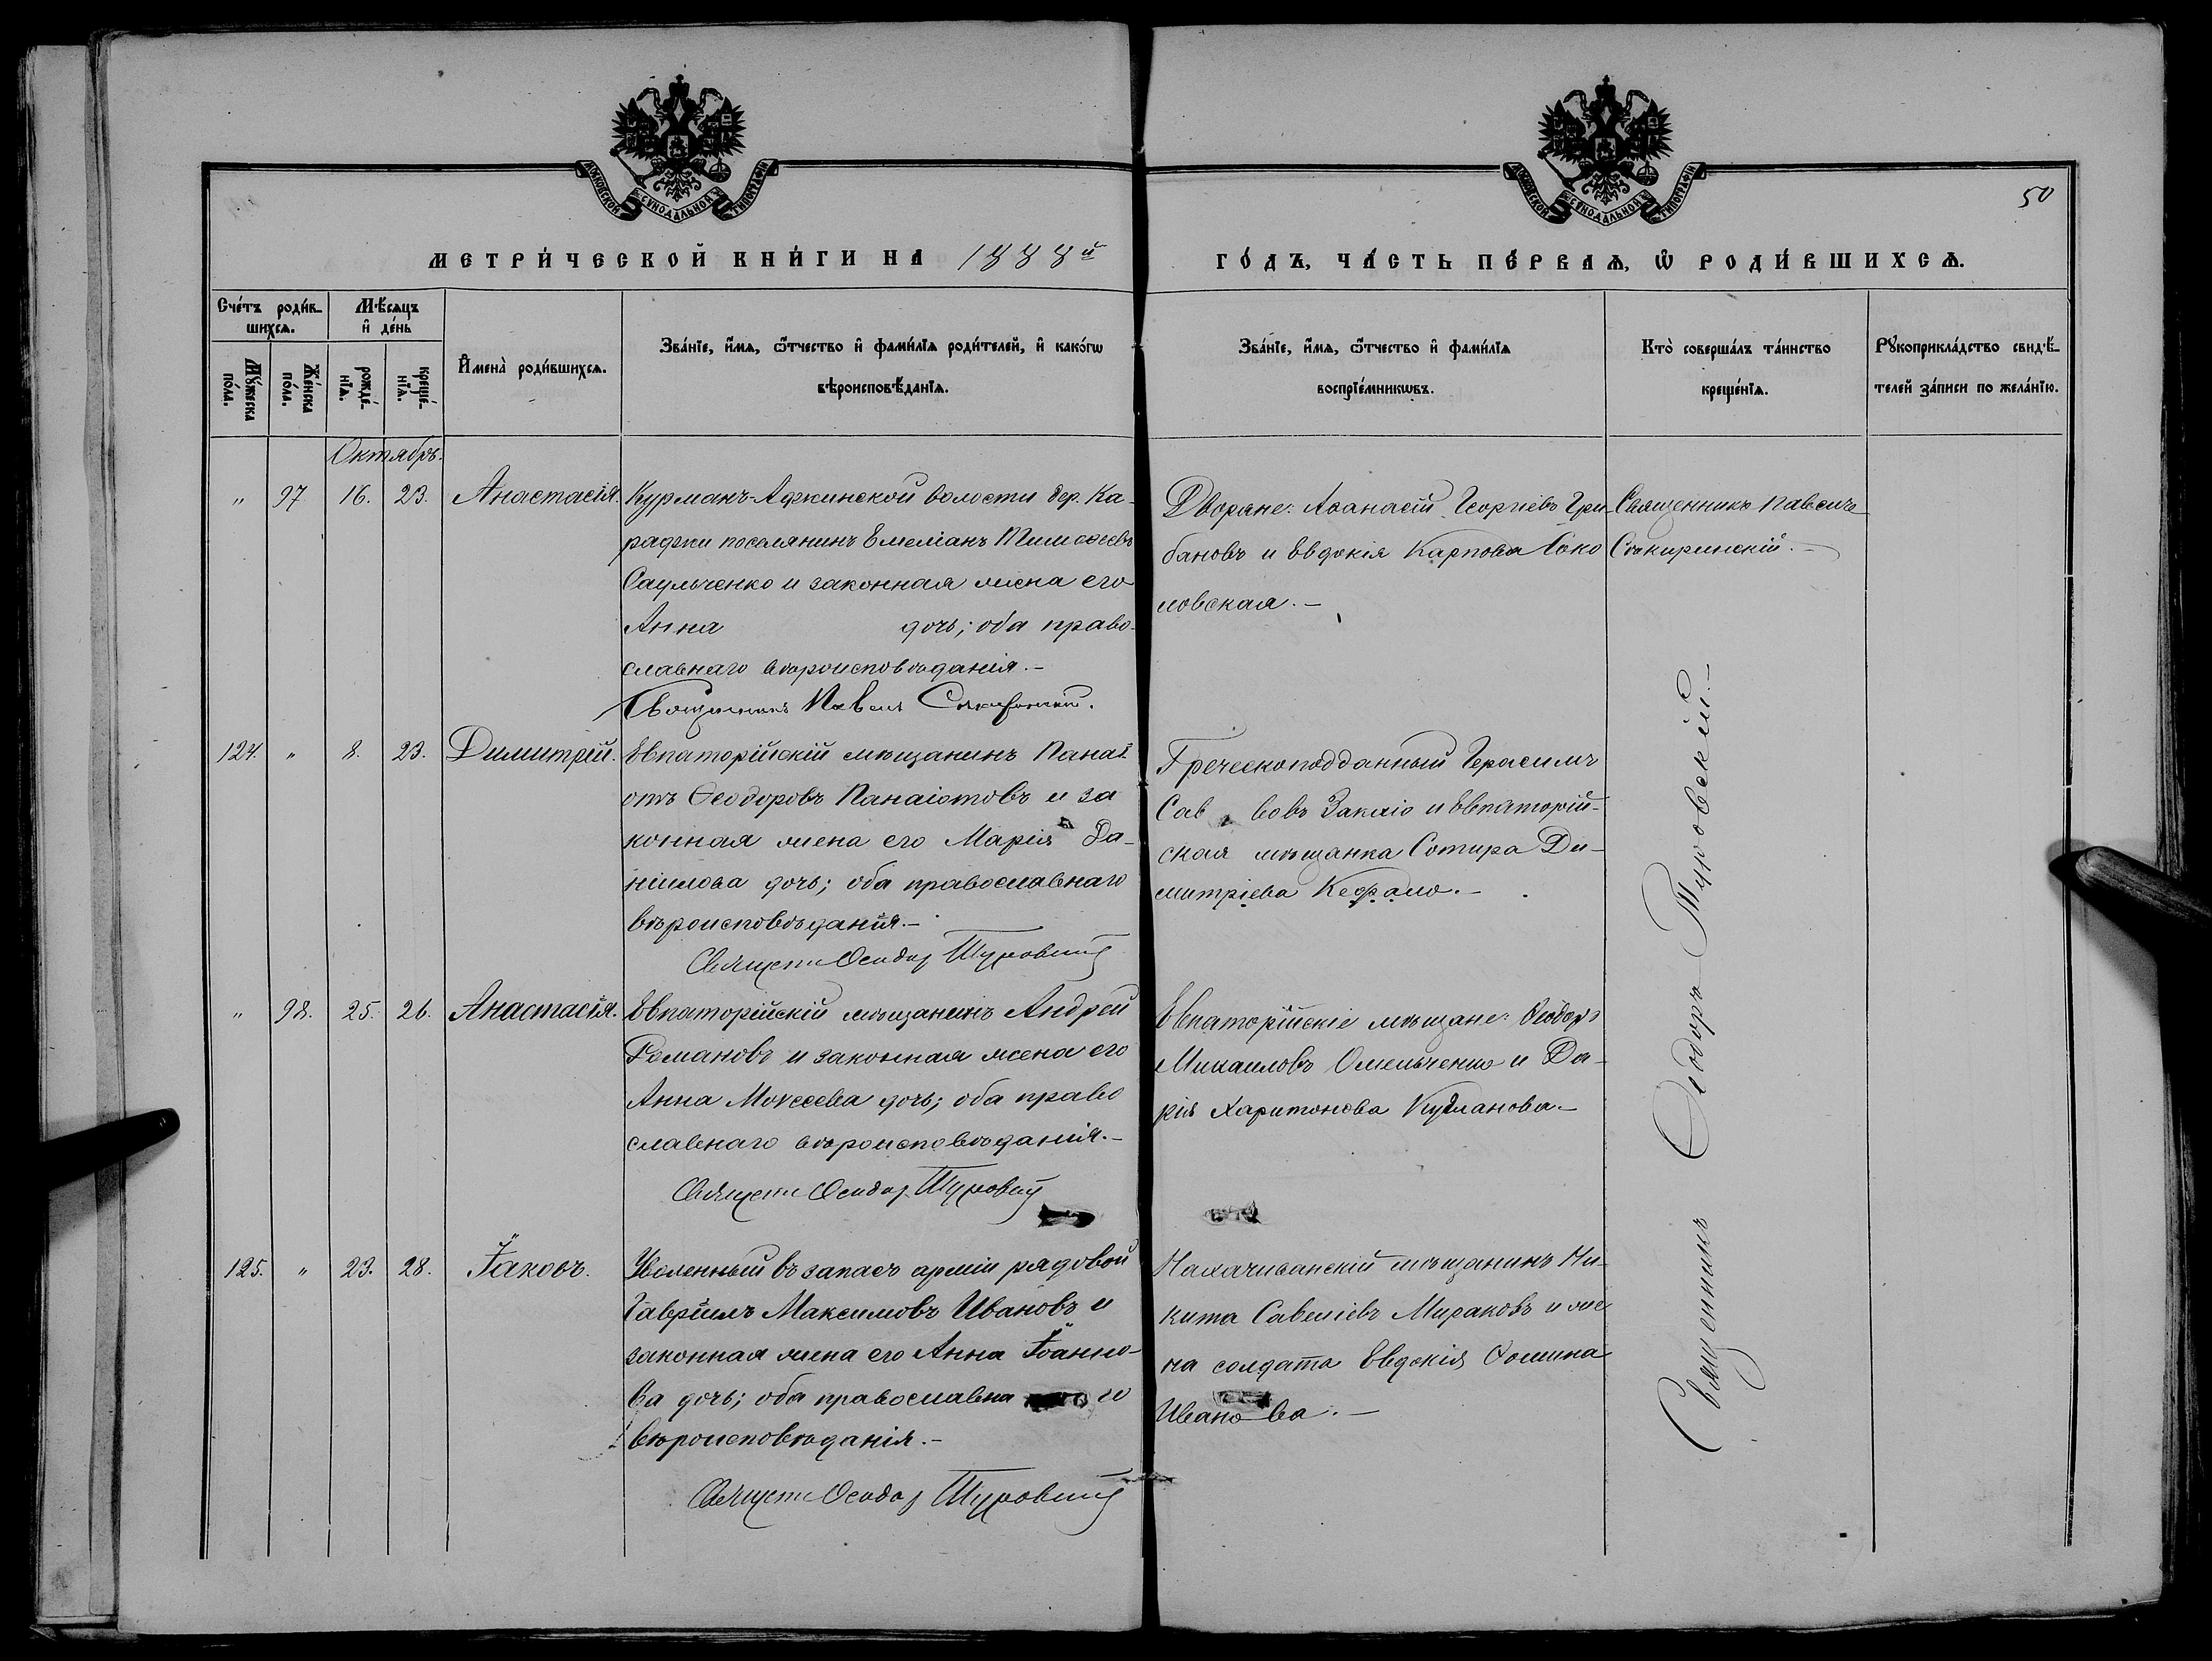 МОСКОВСКОЙ СѴНОДАЛЬНОЙ ТИПОГРАФІИ
МОСКОВСКОЙ СѴНОДАЛЬНОЙ ТИПОГРАФІИ
50
МЕТРИ́ЧЕСКОЙ КНИ́ГИ НА 1888й
ГО́ДЪ, ЧА́СТЬ ПЕ́РВАѦ, Ѡ҆ РОДИ́ВШИХСѦ.
Сче́тъ роди́в-
шихсѧ.
Мꙋ́жеска
по́ла.
Же́нска
по́ла.
Мѣ́сѧцъ
и҆ де́нь
рожде́-
нїѧ.
креще́-
нїѧ.
И҆мена̀ роди́вшихсѧ.
Зва́нїе, и҆́мѧ, ѻ҆́тчество и҆ фами́лїѧ роди́телей, и҆ како́гѡ
вѣроисповѣ́данїѧ.
Зва́нїе, и҆́мѧ, ѻ҆́тчество и҆ фами́лїѧ
воспрїе́мникѡвъ.
Кто̀ соверша́лъ та́инство
креще́нїѧ.
Рꙋкоприкла́дство свидѣ́-
телей за́писи по жела́нїю.
Октябрь.
„ 97 16. 23. Анастасія.
Курманъ-Аджинской волости дер. Ка-
раджи поселянинъ Емеліанъ Тимоѳеевъ
Саульченко и законная жена его
Анна дочь; оба право-
славнаго вѣроисповѣданія.-
Священникъ Павелъ Сѣкиринскій.
Дворяне: Аѳанасій Георгіевъ Гри-
бановъ и Евдокія Карпова Соко
ловская.-
Священникъ Павелъ
Сѣкиринскій.-
124. „ 8. 23. Димитрій.
Евпаторійскій мѣщанинъ Панаі-
отъ Ѳеодоровъ Панаіотовъ и за
конная жена его Марія Да-
ніилова дочь; оба православнаго
вѣроисповѣданія.-
Священ Ѳеодор Туровскій
Греческоподданный Герасимъ
Сав вовъ Закліо и Евпаторій-
ская мѣщанка Сотира Ди-
митріева Кефало.-
„ 98. 25. 26. Анастасія.
Евпаторійскій мѣщанинъ Андрей
Романовъ и законная жена его
Анна Моѵсеева дочь; оба право
славнаго вѣроисповѣданія.-
Священ Ѳеодор Туровскій
Евпаторійскіе мѣщане: Ѳеодоръ
Михаиловъ Омельченко и Да-
рія Харитонова Кутланова.-
125. „ 23. 28. Іаковъ.
Уволенный въ запасъ арміи рядовой
Гавріилъ Максимовъ Ивановъ и
законная жена его Анна Іоанно-
ва дочь; оба православна го
вѣроисповѣданія.-
Священ Ѳеодор Туровскій
Нахичеванскій мѣщанинъ Ни-
кита Савеліевъ Мираковъ и же
на солдата Евдокія Ѳомина
Ивано-ва.-
Священникъ Ѳеодоръ Туровскій.-